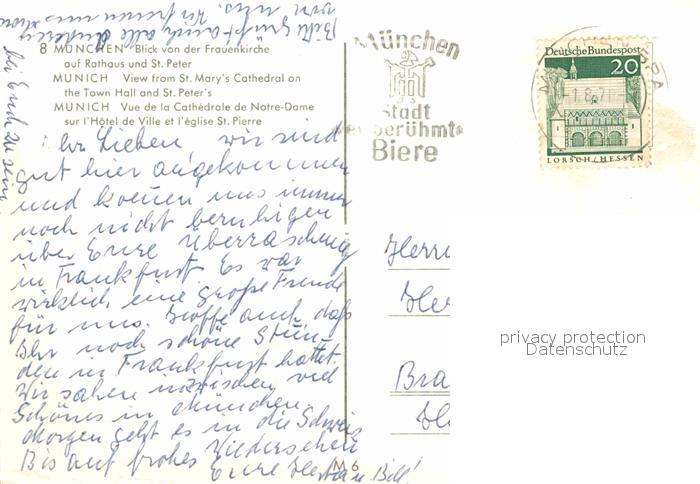 Bitte Grüßt auch alle anderen
von uns. Wir freuen uns schon
bei Euch zu sein
8 MÜNCHEN Blick von der Frauenkirche
auf Rathaus und St. Peter
MUNICH View from St. Mary's Cathedral on
the Town Hall and St. Peter's
MUNICH Vue de la Cathédrale de Notre-Dame
sur l'Hôtel de Ville et l'église St. Pierre
München
Stadt
weltberühmter
Biere
Deutsche Bundespost
20
LORSCH/HESSEN
Ihr Lieben, wir sind
gut hier angekommen
und koenen uns immer
noch nicht beruhigen
über Eure Überraschung
in Frankfurt. Es war
wirklich eine große Freude
für uns. Hoffe auch daß
Ihr noch schöne Stun-
den in Frankfurt hattet.
Wir sahen inzwischen viel
Schönes in München.
Morgen geht es in die Schweiz
Bis auf frohes Wiedersehen
Eure u. Bill!
M 6
Herrn
Her
Bra
privacy protection
Datenschutz